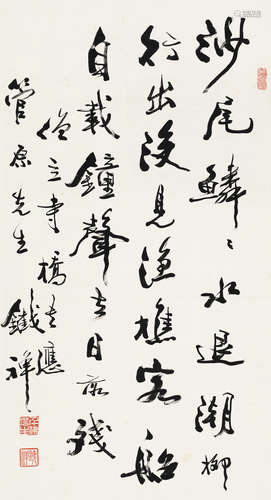 沙尾鱗〻水退潮柳
行出沒見漁樵客船
自載鐘聲去日落殘
僧立寺橋應
管原先生 鐵禪